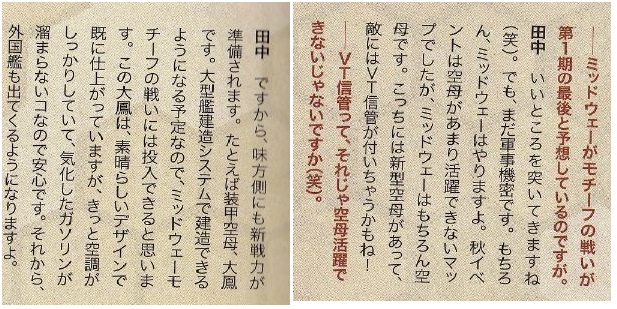 ――ミッドウェーがモチーフの戦いが
第1期の最後と予想しているのですが。
田中　いいところを突いてきますね
（笑）。でも、まだ軍事機密です。もちろ
ん、ミッドウェーはやりますよ。秋イベ
ントは空母があまり活躍できないマッ
プでしたが、ミッドウェーはもちろん空
母です。こっちには新型空母があって、
敵にはVT信管が付いちゃうかもね！
――VT信管って、それじゃ空母活躍で
きないじゃないですか（笑）。
田中　ですから、味方側にも新戦力が
準備されます。たとえば装甲空母、大鳳
です。大型艦建造システムで建造できる
ようになる予定なので、ミッドウェーモ
チーフの戦いには投入できると思いま
す。この大鳳は、素晴らしいデザインで
既に仕上がっていますが、きっと空調が
しっかりしていて、気化したガソリンが
溜まらないコなので安心です。それから、
外国艦も出てくるようになりますよ。